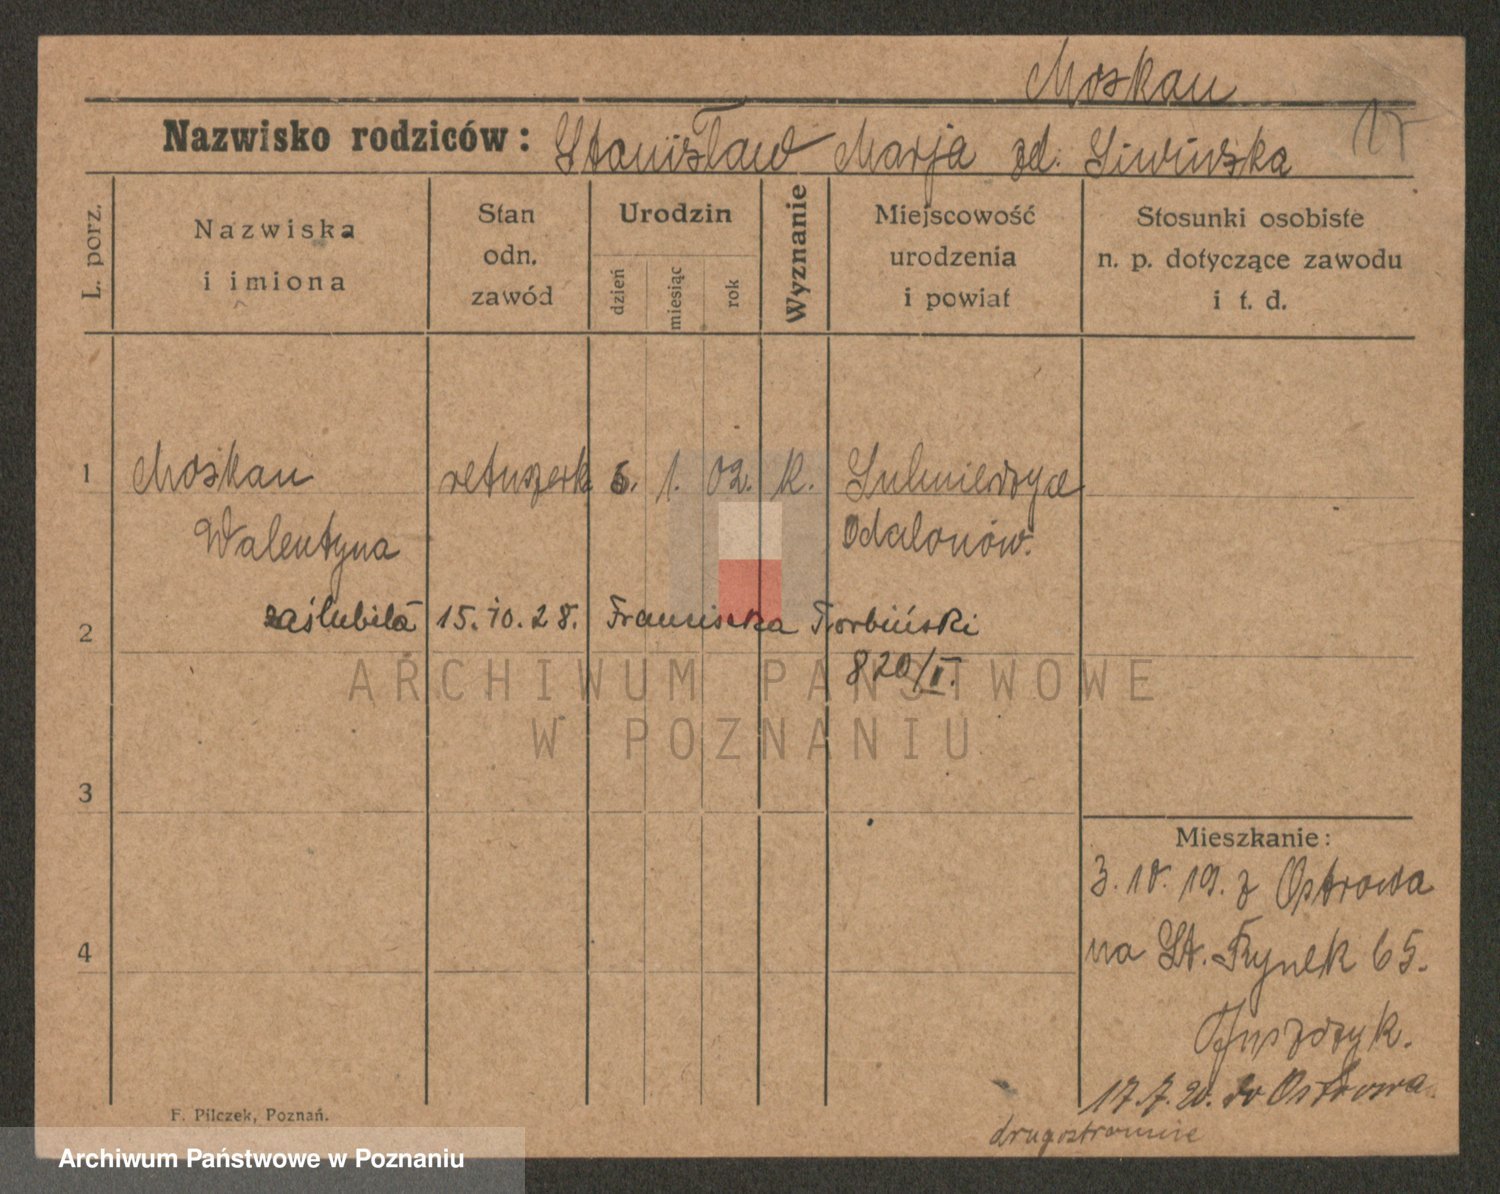 Moskau
Nazwisko rodziców: Stanisław Marja zd. Siwińska
L. porz.
Nazwiska i imiona
Stan odn. zawód
Urodzin
dzień miesiąc rok
Wyznanie
Miejscowość urodzenia i powiat
Stosunki osobiste n. p. dotyczące zawodu i t. d.
1 Moskau retuszerk 5. 1. 02. k. Sulmierzyce
Walentyna Odalonów.
2 zaślubiła 15. 10. 28. Franciszka
820/II.
ARCHIWUM PAŃSTWOWE
W POZNANIU
3
Mieszkanie:
3. 10. 19. z Ostrowa
4 na St. Rynek 65.
17. 7. 20. do Ostrowa
drugostronnie
F. Pilczek, Poznań.
Archiwum Państwowe w Poznaniu